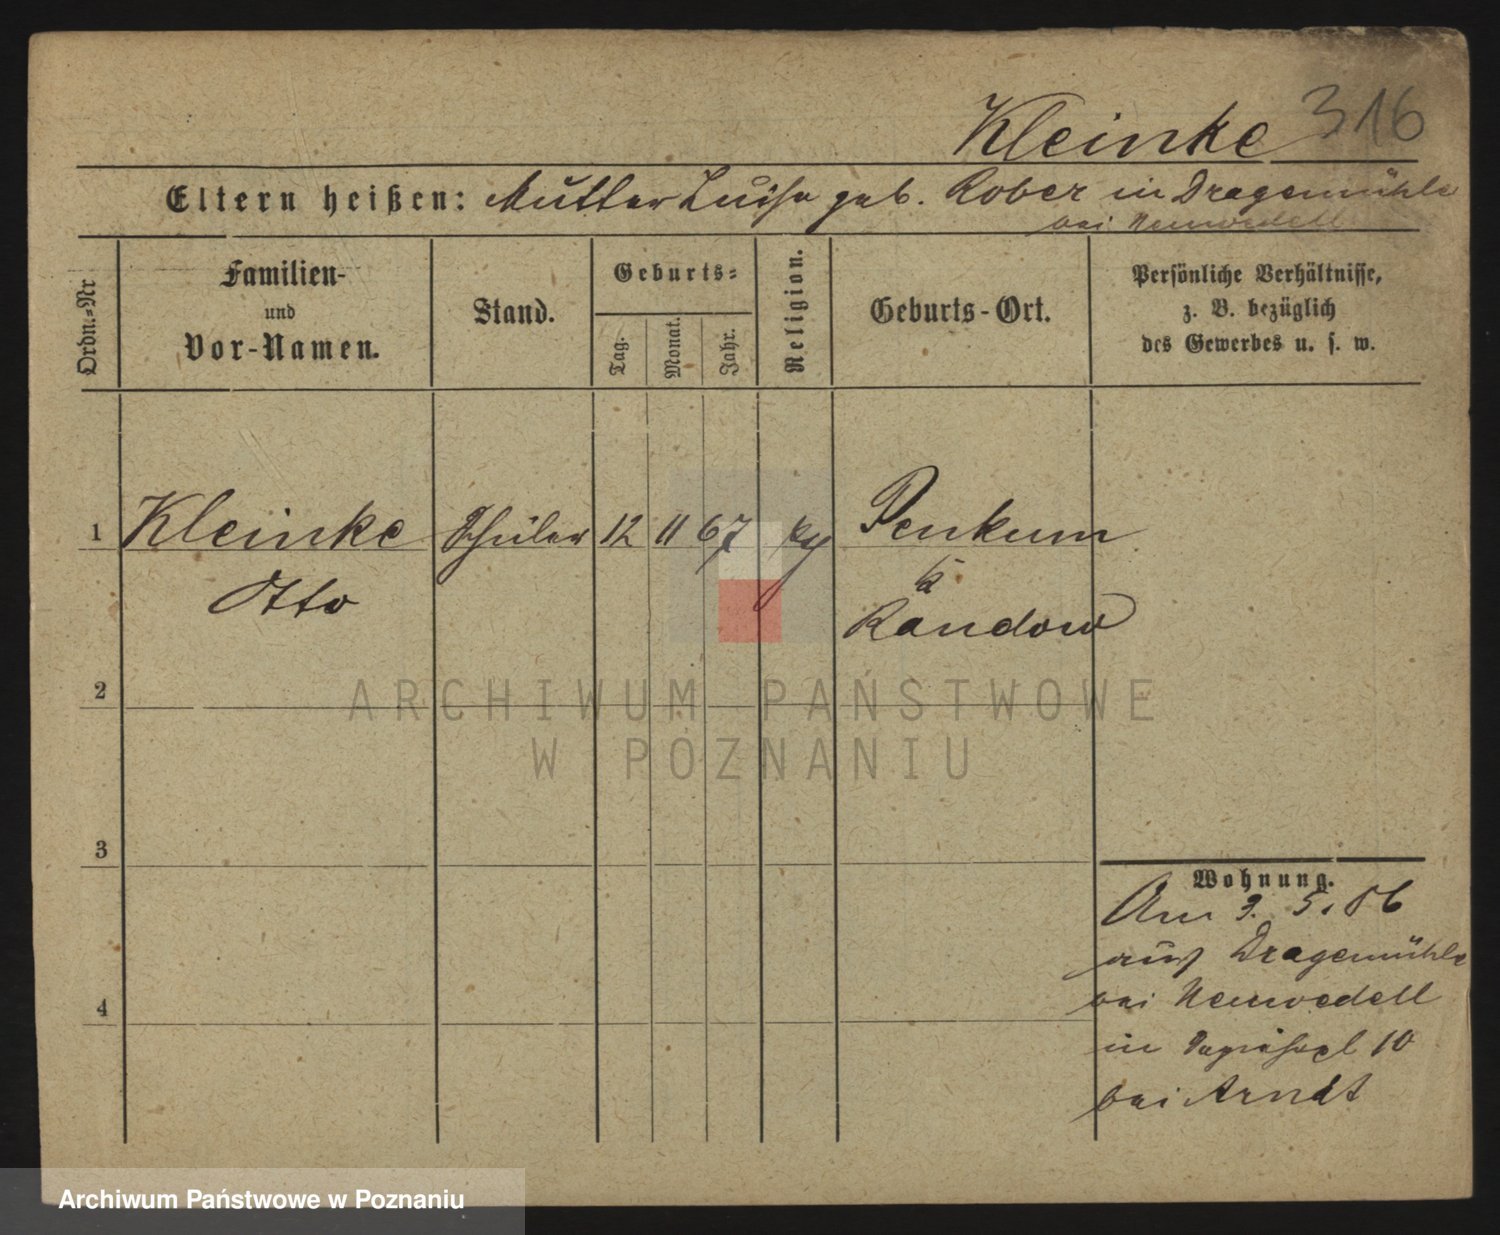 Kleinke 316
Eltern heißen: Mutter Luise geb. Rober in Dragemühle
bei Neuwedell
Ordn.-Nr
Familien-
und
Vor-Namen.
Stand.
Geburts-
Tag.
Monat.
Jahr.
Religion.
Geburts-Ort.
Persönliche Verhältnisse,
z. B. bezüglich
des Gewerbes u. s. w.
1 Kleinke Schüler 12 11 67 Penkum
Otto
Kr
Randow
2
ARCHIWUM PAŃSTWOWE
W POZNANIU
3
4
Wohnung.
Am 3. 5. 86
aus Dragemühle
bei Neuwedell
in 10
bei Arndt
Archiwum Państwowe w Poznaniu